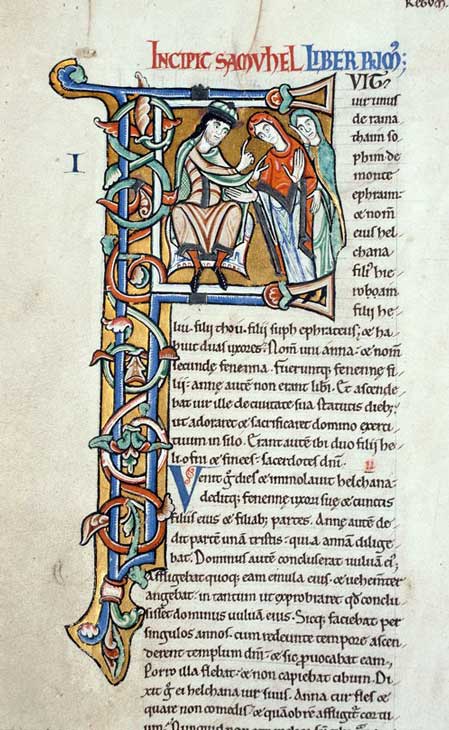 INCIPIT SAMVHEL LIBER PRIM';
I
FVIT
uir unus
de rama
thaim so
phim de
monte
ephraim·
& nom̄
eius hel
chana
filiꝰ hie
roboam
filii he
liu· filij thou· filij suph ephrateus; & ha
buit duas uxores· Nom̄ uni anna· & nom̄
secunde fenenna· Fueruntq; fenenne fi
lii· anne autē non erant libi· Et ascende
bat uir ille de ciuitate sua statutis dieb;
ut adoraret & sacrificaret domino exerci
tuum in silo· Erant autē ibi duo filij he
li· ofni & finees· sacerdotes dn̄i·
ii
Venit g̊ dies & immolauit helchana·
deditq; fenenne uxori sue & cunctis
filiis eius & filiab; partes· Anne autē de
dit partē unā tristis· quia annā dilige
bat· Dominus autē concluserat uuluā ei'·
Affligebat quoq; eam emula eius· & uehemt̄er
angebat· in tantum ut exprobraret qd̄ conclu
sisset dominus uuluā eius· Sicq; faciebat per
singulos annos· cum redeunte tempore ascen
derent templum dn̄i· & sic p̱uocabat eam·
Porro illa flebat· & non capiebat cibum· Di
xit g̊ ei helchana uir suus· Anna cur fles &
quare non comedis· & quāobrē affligit̄ cor tu